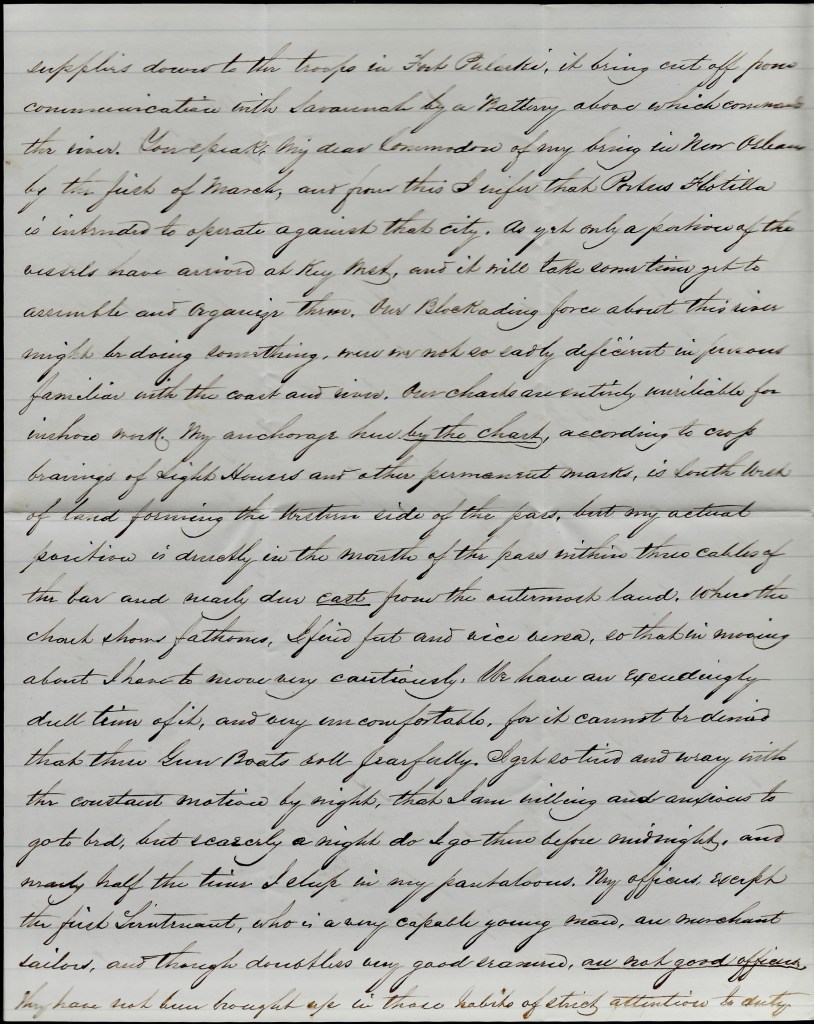 supplies down to the troops in Fort Pulaski, it being cut off from
communication with Savannah by a Battery above which commands
the river. You speak, My dear Commodore of my being in New Orleans
by the first of March, and from this I infer that Porters Flotilla
is intended to operate against that city. As yet only a portion of the
vessels have arrived at Key West, and it will take some time yet to
assemble and Organize them. Our Blockading force about this river
might be doing something, were we not so sadly deficient in persons
familiar with the coast and river. Our charts are entirely unreliable for
inshore work. My anchorage here by the chart, according to crop
bearings of Light Houses and other permanent marks, is South West
of land forming the Western side of the pass, but my actual
position is directly in the mouth of the pass within three cables of
the bar and nearly due east from the outermost land. Where the
chart shows fathoms, I find feet and vice versa, so that in moving
about I have to move very cautiously. We have an Exceedingly
dull time of it, and very uncomfortable, for it cannot be denied
that these Gun Boats roll fearfully. I get so tired and weary with
the constant motion by night, that I am willing and anxious to
go to bed, but scarcely a night do I go there before midnight, and
nearly half the time I sleep in my pantaloons. My officers, except
the first Lieutenant, who is a very capable young man, are merchant
sailors, and though doubtless very good seamen, are not good officers,
They have not been brought up in those habits of strict attention to duty